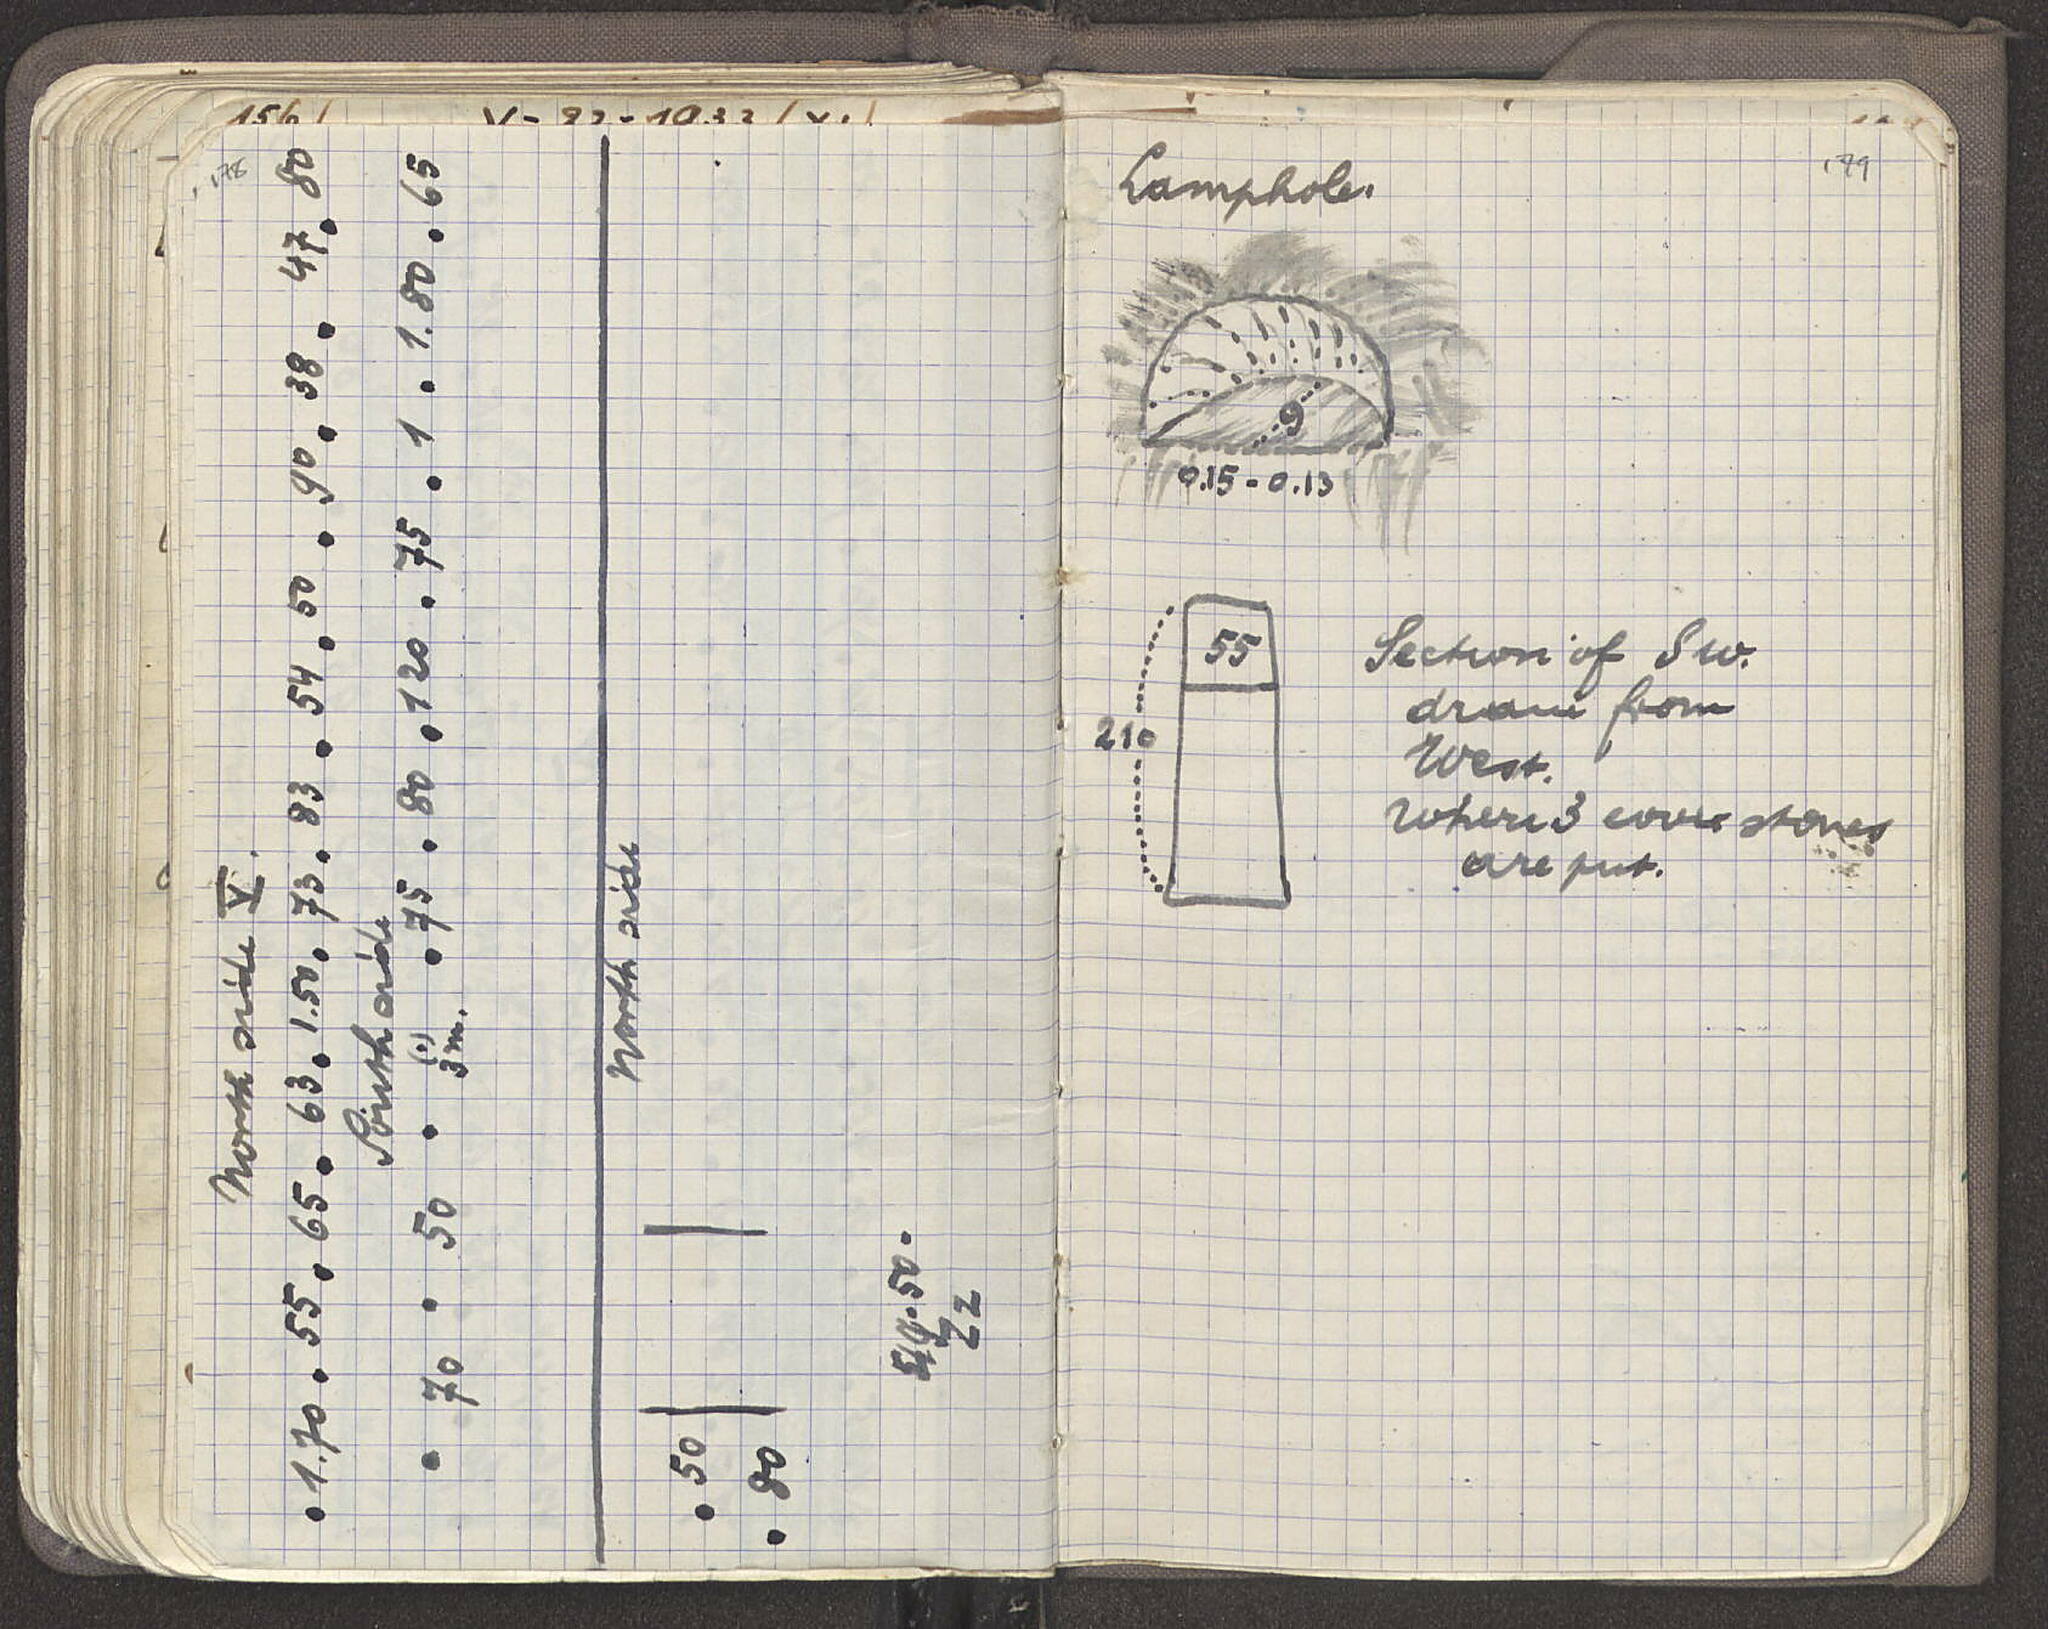 178
North side V.
• 1.70 • 55 • 65 • 63 • 1.50 • 73 • 83 • 54 • 50 • 90 • 38 • 47 • 80
South side
• 70 • 50 • (.) • 75 • 80 • 120 • 75 • 1 • 1.80 • 65
3 m.
North side
• 50
• 80
50.
22
179
Lamphole.
9
0.15 - 0.13
55
210
Section of S W.
drain from
West.
where 3 cover stones
are put.